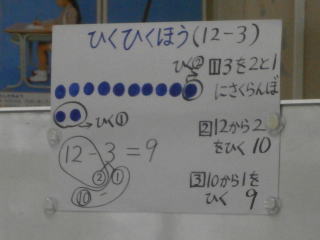 ひくひくほう(12-3)
ひく②
1 3を2と1
にさくらんぼ
→ひく①
2 12から2
をひく 10
12-3=9
② ①
⑩ -
3 10から1を
ひく 9